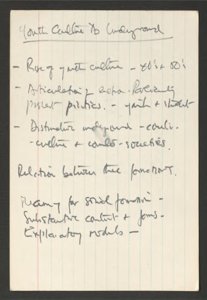 Youth Culture to Underground
- Rise of youth culture - 40's + 50's
- Articulation of extra-Parliamentary
protest politics. - youth + student
- Distinctive underground - counter-
-culture + counter-societies.
Relation between these functions.
Meaning for social formation -
Substantive content + forms.
Explanatory models -